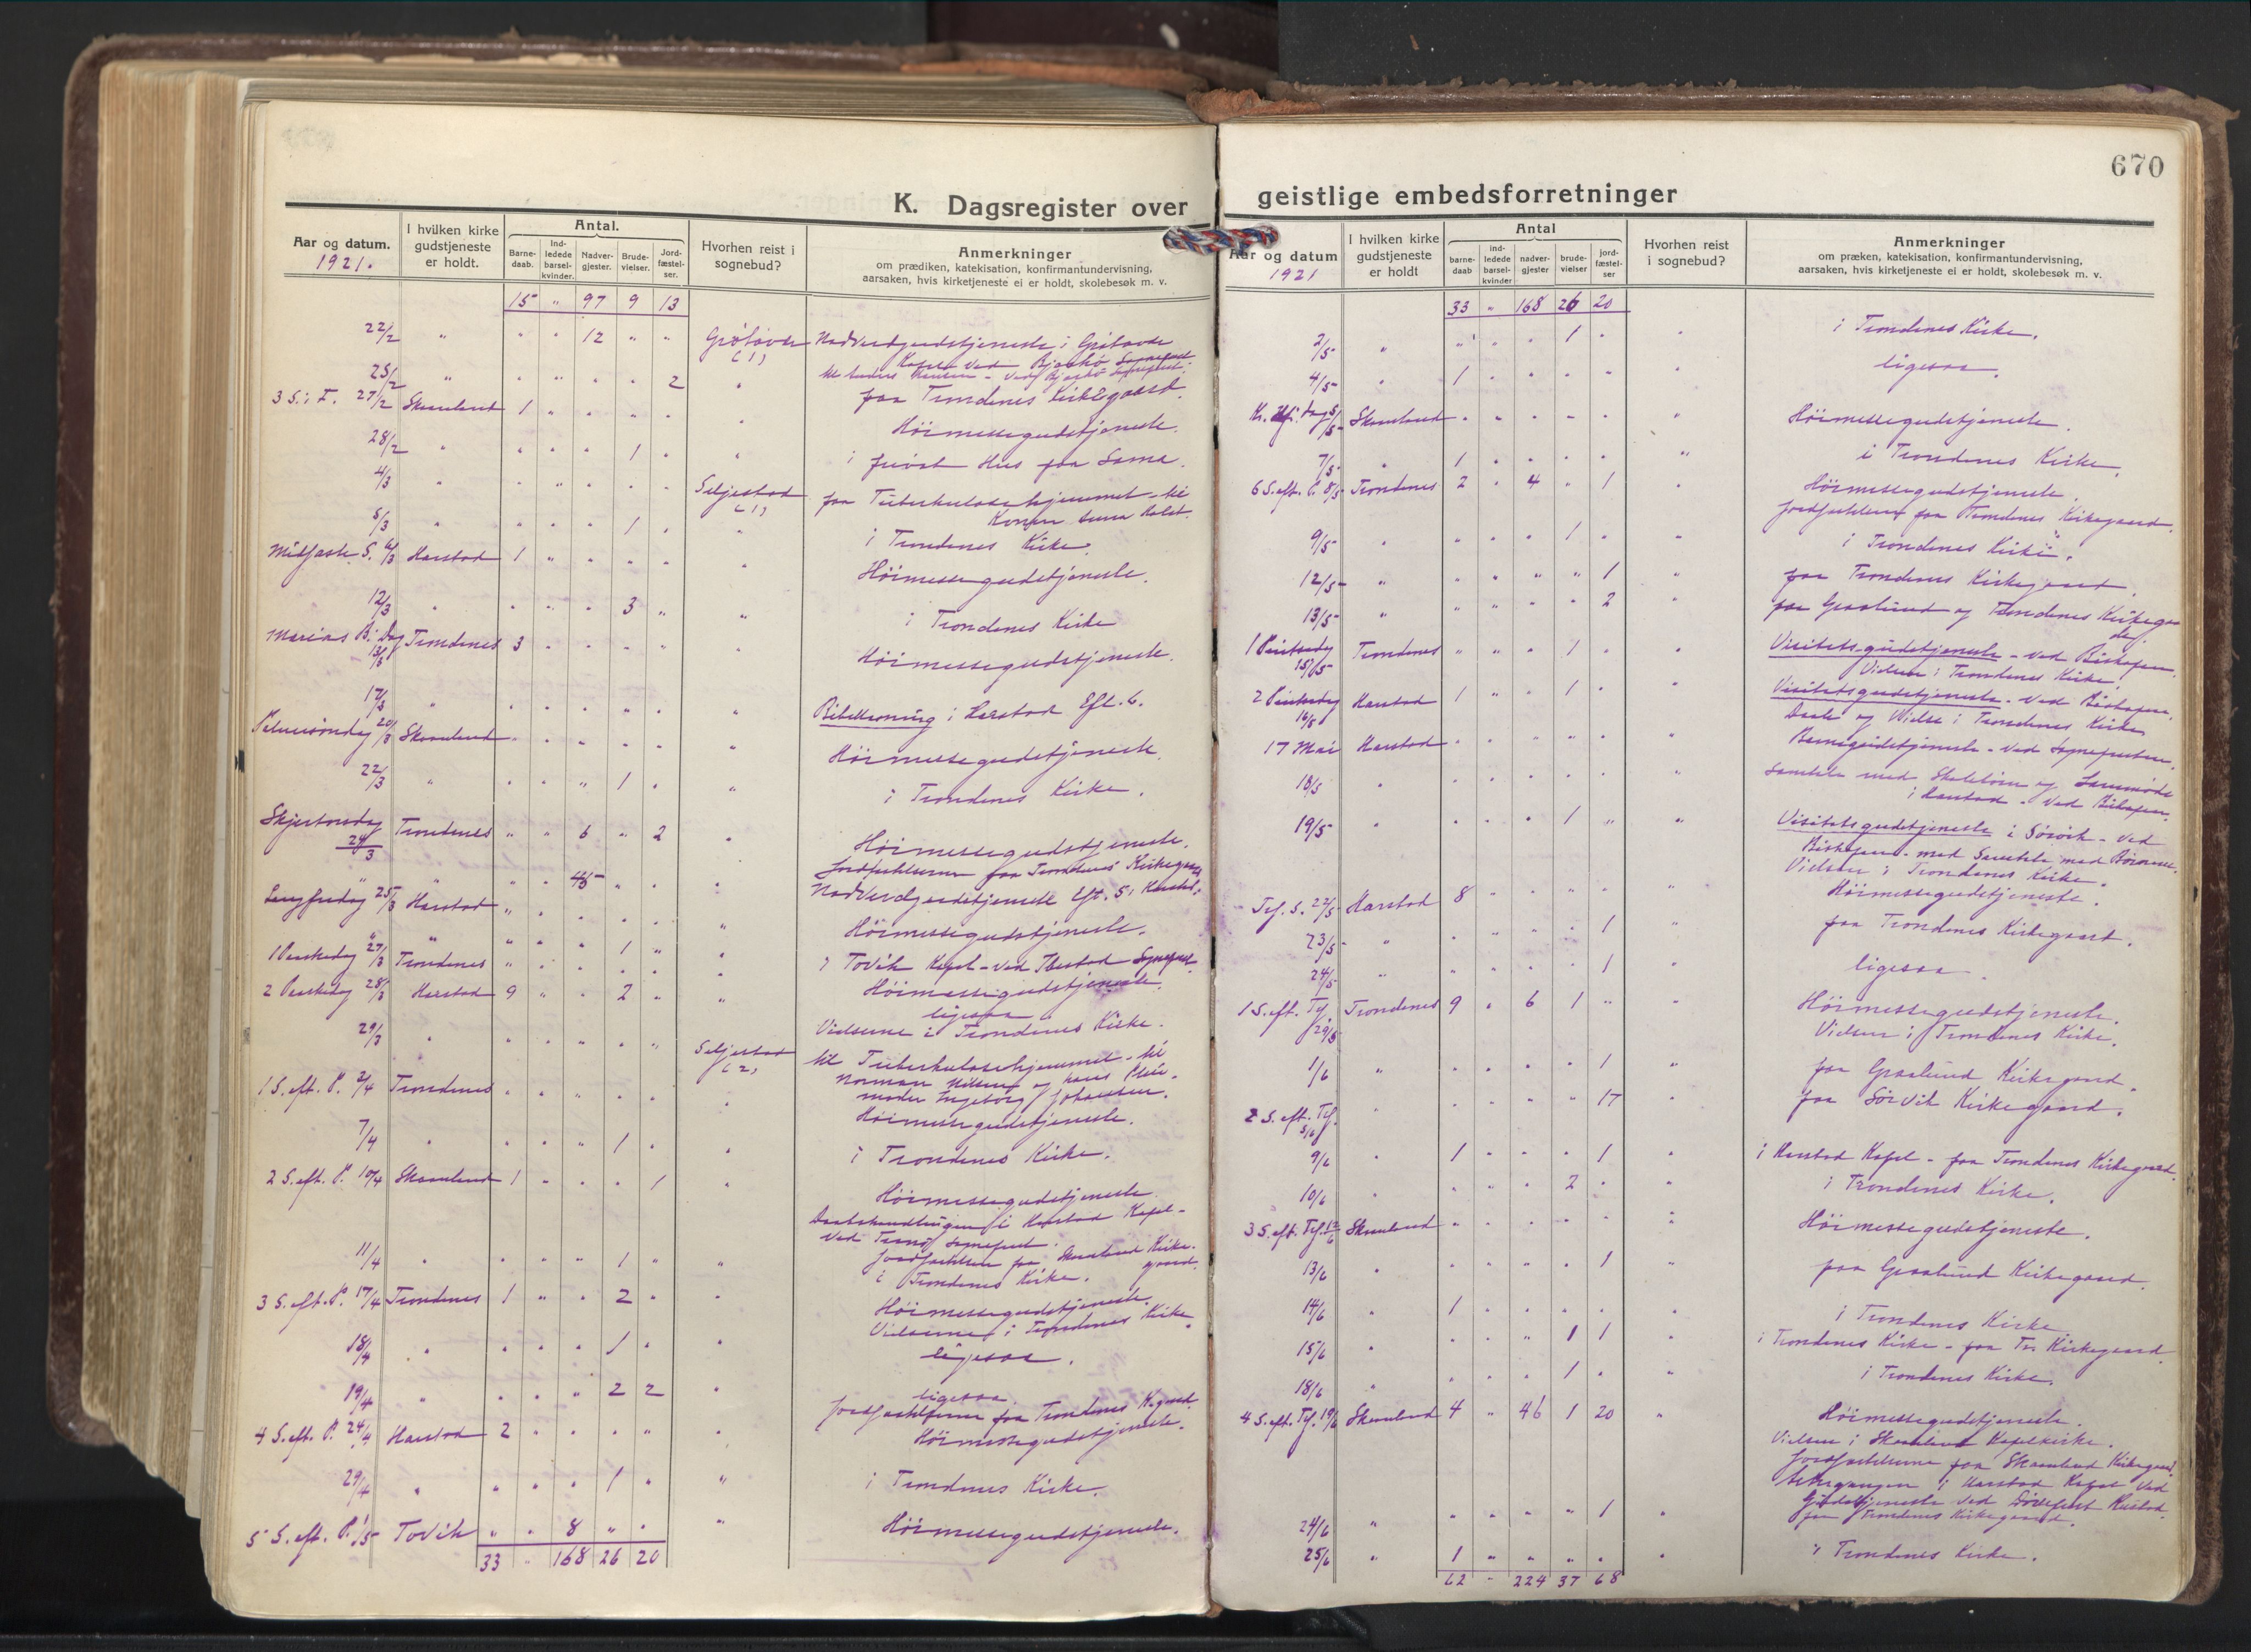 670
K. Dagsregister over
geistlige embedsforretninger
Aar og datum.
1921.
I hvilken kirke
gudstjeneste
er holdt.
Antal.
Barne-
daab.
Ind-
ledede
barsel-
kvinder.
Nadver-
gjester.
Brude-
vielser.
Jord-
fæstel-
ser.
Hvorhen reist i
sognebud?
Anmerkninger
om prædiken, katekisation, konfirmantundervisning,
aarsaken, hvis kirketjeneste ei er holdt, skolebesøk m. v.
15 " 97 9 13
22/2 " " " 12 " " Nadverdgudstjeneste i
25/2 " " " " " 2 "
paa Trondenes Kirkegaard.
3 S. i F. 27/2 Skaanland 1 " " " " "
Höimessegudstjeneste.
28/2 " " " " 1 " " i privat Hus paa Sama.
4/3 " " " " " " Seljestad
(1)
paa Tuberkulosehjemmet - til
5/3 " " " " 1 " " i Trondenes Kirke.
Midfaste S. 6/3 Harstad 1 " " " " " Höimessegudstjeneste.
12/3 " " " " 3 " " i Trondenes Kirke
Marias B. Dag
13/3 Trondenes 3 " " " " " Höimessegudstjeneste.
17/3 " " " " " " " Bibellesning i Harstad Eft. 6.
Palmesöndag 20/3 Skaanland " " " " " " Höimessegudstjeneste.
22/3 " " " " 1 " " i Trondenes Kirke.
Skjertorsdag
24/3 Trondenes " " 6 " 2 " Höimessegudstjeneste.
Jordfæstelserne paa Trondenes Kirkegaard
" " " " 45 " " " Nadverdgudstjeneste Eft. 5 i Harstad.
Langfredag 25/3 Harstad " " " " " " Höimessegudstjeneste.
" " " " " 1 " " i Tovik Kapel - ved Ibestad Sognepr.
1 Paaskedag 27/3 Trondenes " " " " " " Höimessegudstjeneste.
2 Paaskedag 28/3 Harstad 9 " " 2 " " ligesaa
Vielserne i Trondenes Kirke.
29/3 " " " " " " Seljestad
(2)
til Tuberkulosehjemmet - til
Ingeborg Johansen.
1 S. eft. P. 3/4 Trondenes " " " " " " Höimessegudstjeneste.
7/4 " " " " 1 " " i Trondenes Kirke.
2 S. eft. P. 10/4 Skaanland 1 " " " 1 " Höimessegudstjeneste
Daabshandlingen i Harstad Kapel -
Jordfæstelsen paa Skaanland Kirke-
gaard.
11/4 " " " " 1 " " i Trondenes Kirke.
3 S. eft. P. 17/4 Trondenes 1 " " 2 " " Höimessegudstjeneste.
Vielserne i Trondenes Kirke.
18/4 " " " " 1 " " ligesaa.
19/4 " " " " 2 2 " ligesaa
Jordfæstelserne paa Trondenes K.gaard
4 S. eft. P. 24/4 Harstad 2 " " " " " Höimessegudstjeneste.
29/4 " " " " 1 " " i Trondenes Kirke.
5 S. eft. P. 1/5 Tovik " " 8 " " " Höimessegudstjeneste.
33 " 168 26 20
Aar og datum
1921
I hvilken kirke
gudstjeneste
er holdt
Antal
barne-
daab
ind-
ledede
barsel-
kvinder
nadver-
gjester
brude-
vielser
jord-
fæstel-
ser
Hvorhen reist
i sognebud?
Anmerkninger
om præken, katekisation, konfirmantundervisning,
aarsaken, hvis kirketjeneste ei er holdt, skolebesøk m. v.
33 " 168 26 20
2/5 " " " " 1 " " i Trondenes Kirke.
4/5 " 1 " " " " " ligesaa.
Kr. Hf. Dag 5/5 Skaanland " " " " " " Höimessegudstjeneste.
7/5 " 1 " " " " " i Trondenes Kirke
6 S. eft. P. 8/5 Trondenes 2 " 4 " 1 " Höimessegudstjeneste.
Jordfæstelsen paa Trondenes Kirkegaard.
9/5 " " " " 1 " " i Trondenes Kirke.
12/5 " " " " " 1 " paa Trondenes Kirkegaard.
13/5 " " " " " 2 " paa Graalund og Trondenes Kirkegaa
der.
1 Pintsedag
15/5 Trondenes " " " 1 " " Visitatsgudstjeneste - ved Biskopen.
Vielsen i Trondenes Kirke.
2 Pintsedag
16/5 Harstad 1 " " 1 " " Visitatsgudstjeneste - ved Biskopen.
Daab og Vielse i Trondenes Kirke
17 Mai Harstad " " " " " " Barnegudstjeneste - ved Sognepresten.
18/5 " " " " " " " Samtale med Skolebörn og
i Harstad - ved Biskopen.
19/5 " " " " 1 " " Visitatsgudstjeneste i Sörvik - ved
Biskopen - med Samtale med Börnene.
Vielsen i Trondenes Kirke.
Tref. S. 22/5 Harstad 8 " " " " " Höimessegudstjeneste.
23/5 " " " " " 1 " paa Trondenes Kirkegaard.
24/5 " " " " " 1 " ligesaa.
1 S. eft. Tref.
29/5 Trondenes 9 " 6 1 " " Höimessegudstjeneste.
Vielsen i Trondenes Kirke.
1/6 " " " " " 1 " paa Graalund Kirkegaard.
2 S. eft. Tref.
5/6 " " " " " 17 " paa Sörvik Kirkegaard.
9/6 " 1 " " " 1 " i Harstad Kapel - paa Trondenes Kirkegaard.
10/6 " " " " 2 " " i Trondenes Kirke.
3 S. eft. Tref. 12/6 Skaanland " " " " " " Höimessegudstjeneste.
13/6 " " " " " 1 " paa Graalund Kirkegaard.
14/6 " 1 " " " " " i Trondenes Kirke
15/6 " " " " 1 1 " i Trondenes Kirke - paa Tr. Kirkegaard.
18/6 " " " " 1 " " i Trondenes Kirke.
4 S. eft. Tref. 19/6 Skaanland 4 " 46 1 20 " Höimessegudstjeneste.
Vielsen i Skaanland Kapelkirke.
Jordfæstelserne paa Skaanland Kirkegaard.
i Harstad Kapel ved
Gudstjeneste ved
24/6 " " " " " 1 " paa Trondenes Kirkegaard.
25/6 " 1 " " " " " i Trondenes Kirke.
62 " 224 37 68